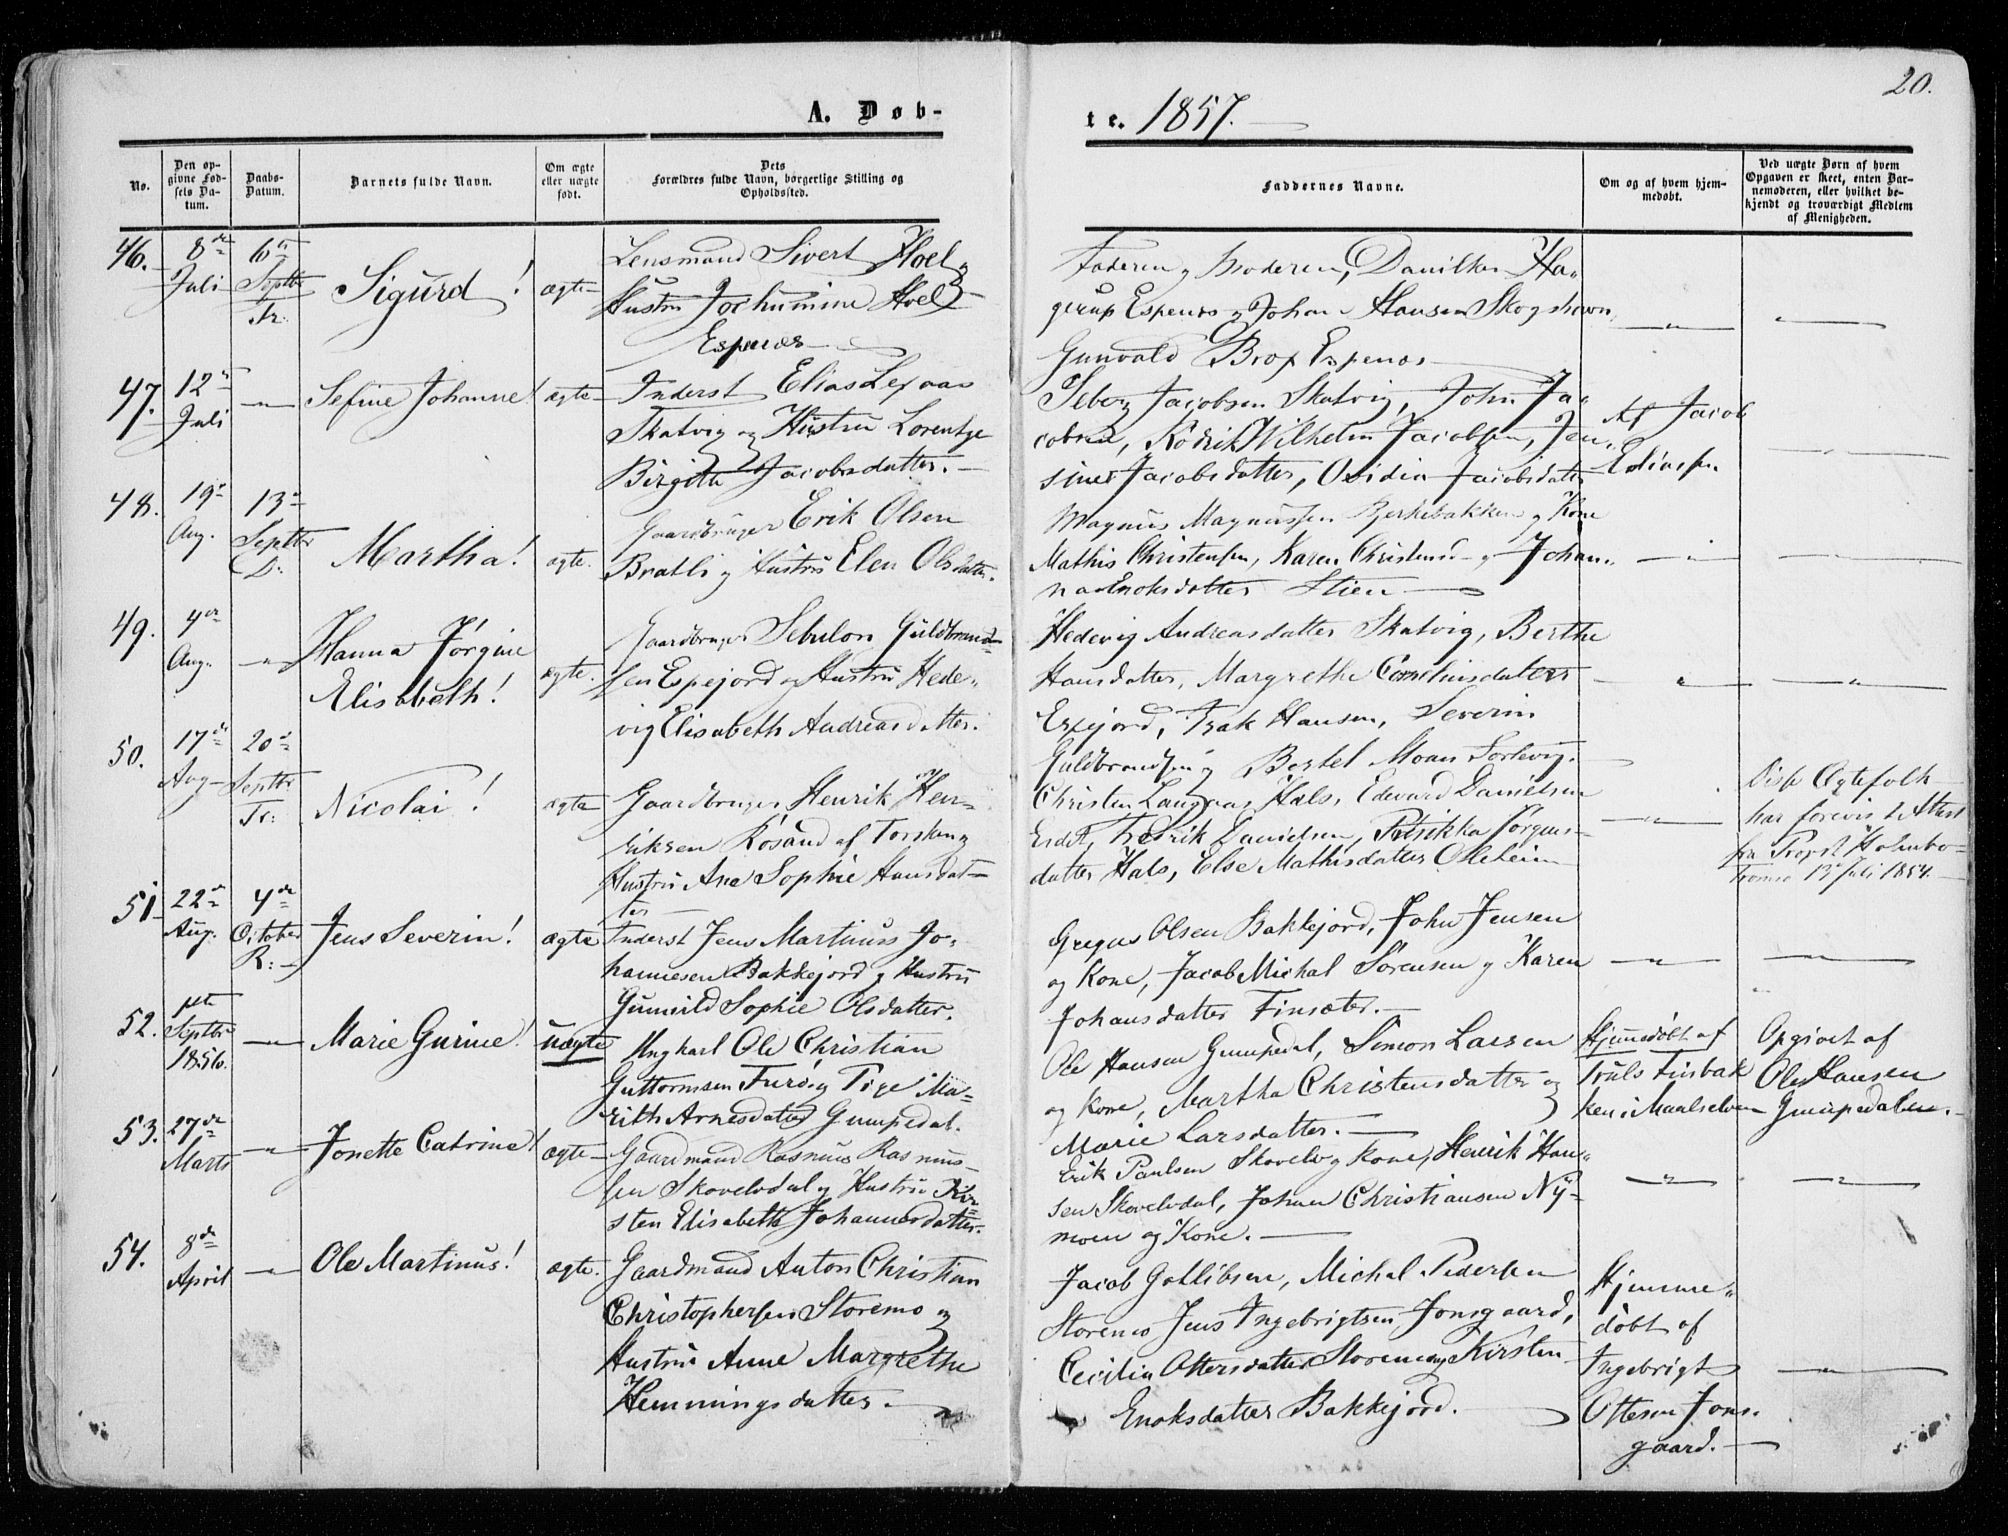 20.
A. Døb-
te. 1857.
No.
Den op-
givne Fød-
sels Da-
tum.
Daabs-
Datum.
Barnets fulde Navn.
Om ægte
eller uægte
født.
Dets
Forældres fulde Navn, borgerlige Stilling og
Opholdssted.
Faddernes Navne.
Om og af hvem hjem-
medøbt.
Ved uægte Børn af hvem
Opgaven er skeet, enten Bar-
nemoderen, eller hvilket be-
kjendt og troværdigt Medlem
af Menigheden.
46.
8de
Juli
6te
Septbr
Tr.
Sigurd!
ægte
Lensmand Sivert Hoel og
Hustru Jochumine Hoel
Espenæs
Faderen og Moderen, Ha-
gerup Espenæs og Johan Hansen Skogshavn,
Gunvald Brox Espenæs
47.
12
Juli
Sefine Johanne!
ægte
Inderst Elias
Skatvig og Hustru Lorentze
Birgitte Jacobsdatter.
Jacobsen Skatvig, John Ja-
cobsen, Wilhelm Jacobsen, Jen-
sine Jacobsdatter, Jacobsdatter
Af Jacob
Eliasen
48.
19
Aug.
13
Septbr
D:
Martha!
ægte.
Gaardbruger Erik Olsen
Bratli og Hustru Elen Olsdatter.
Magnus Magnussen Bjerkebakken og Kone
Mathis Christensen, Karen Christensd og Johan-
na Enoksdatter Stien
49.
4de
Aug.
Hanna Jørgine
Elisabeth!
ægte.
Gaardbruger Sebulon Guldbrand-
sen Espejord og Hustru Hede-
vig Elisabeth Andreasdatter.
Hedevig Andreasdatter Skatvig, Berthe
Hansdatter, Margrethe Corneliusdatter
Espejord, Isak Hansen, Severin
Guldbrandsen og Bertel Moan Sørlevig.
50.
17de
Aug
20de
Septbr
Tr:
Nicolai!
ægte
Gaardbruger Henrik Hen-
riksen Rosånd af Torsken og
Hustru Ane Sophie Hansdat-
ter
Christen Langnæs Hals, Edevard Danielsen
Fredrik Danielsen, Petrikka Jørgens-
datter Hals, Else Mathisdatter Oleheim
Disse Ægtefolk
har forevist Attest
fra Provst Holmbo
Tromsø 13 Juli 1854.
51
22de
Aug.
4de
October
R:
Jens Severin!
ægte
Inderst Jens Martinus Jo-
hannesen Bakkejord og Hustru
Gunnild Sophie Olsdatter.
Gregus Olsen Bakkejord, John Jensen
og Kone, Jacob Michal Sørensen og Karen
Johansdatter Finsæter.
52.
1ste
Septbr
1856.
Marie Gurine!
uægte
Ungkarl Ole Christian
Guttormsen Furø og Pige Ma-
rith Arnesdatter Gumpedal.
Ole Hansen Gumpedal, Simon Larsen
og Kone, Martha Christensdatter og
Marie Larsdatter.
Hjemmedøbt af
Truls Finbak
ken i Maalselven
Opgivet af
Ole Hansen
Gumpedalen.
53.
27de
Marts
Jonette Catrine!
ægte
Gaardmand Rasmus Rasmus-
sen Skovelvdal og Hustru Kir-
sten Elisabeth Johannesdatter.
Erik Paulsen Skovelv og Kone, Henrik Han-
sen Skovelvdal, Johan Christiansen Ny-
moen og Kone.
54.
8de
April
Ole Martinus!
ægte.
Gaardmand Anton Christian
Christophersen Storemo og
Hustru Anne Margrethe
Hemmingsdatter.
Jacob Gotlibsen, Michal Pedersen
Storemo Jens Ingebrigtsen Jonsgaard,
Cecilia Ottersdatter Storemo og Kirsten
Enoksdatter Bakkejord.
Hjemme-
døbt af
Ingebrigt
Ottesen Jons-
gaard.